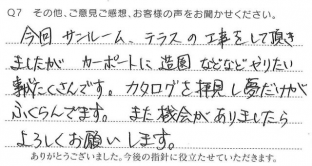 Q7 その他、ご意見ご感想、お客様の声をお聞かせください。
今回 サンルーム、テラスの工事をして頂き
ましたが カーポートに 造園 などなどやりたい
事がたくさんです。カタログを拝見し夢だけが
ふくらんでます。また機会がありましたら
よろしくお願いします。
ありがとうございました。今後の指針に役立たせていただきます。